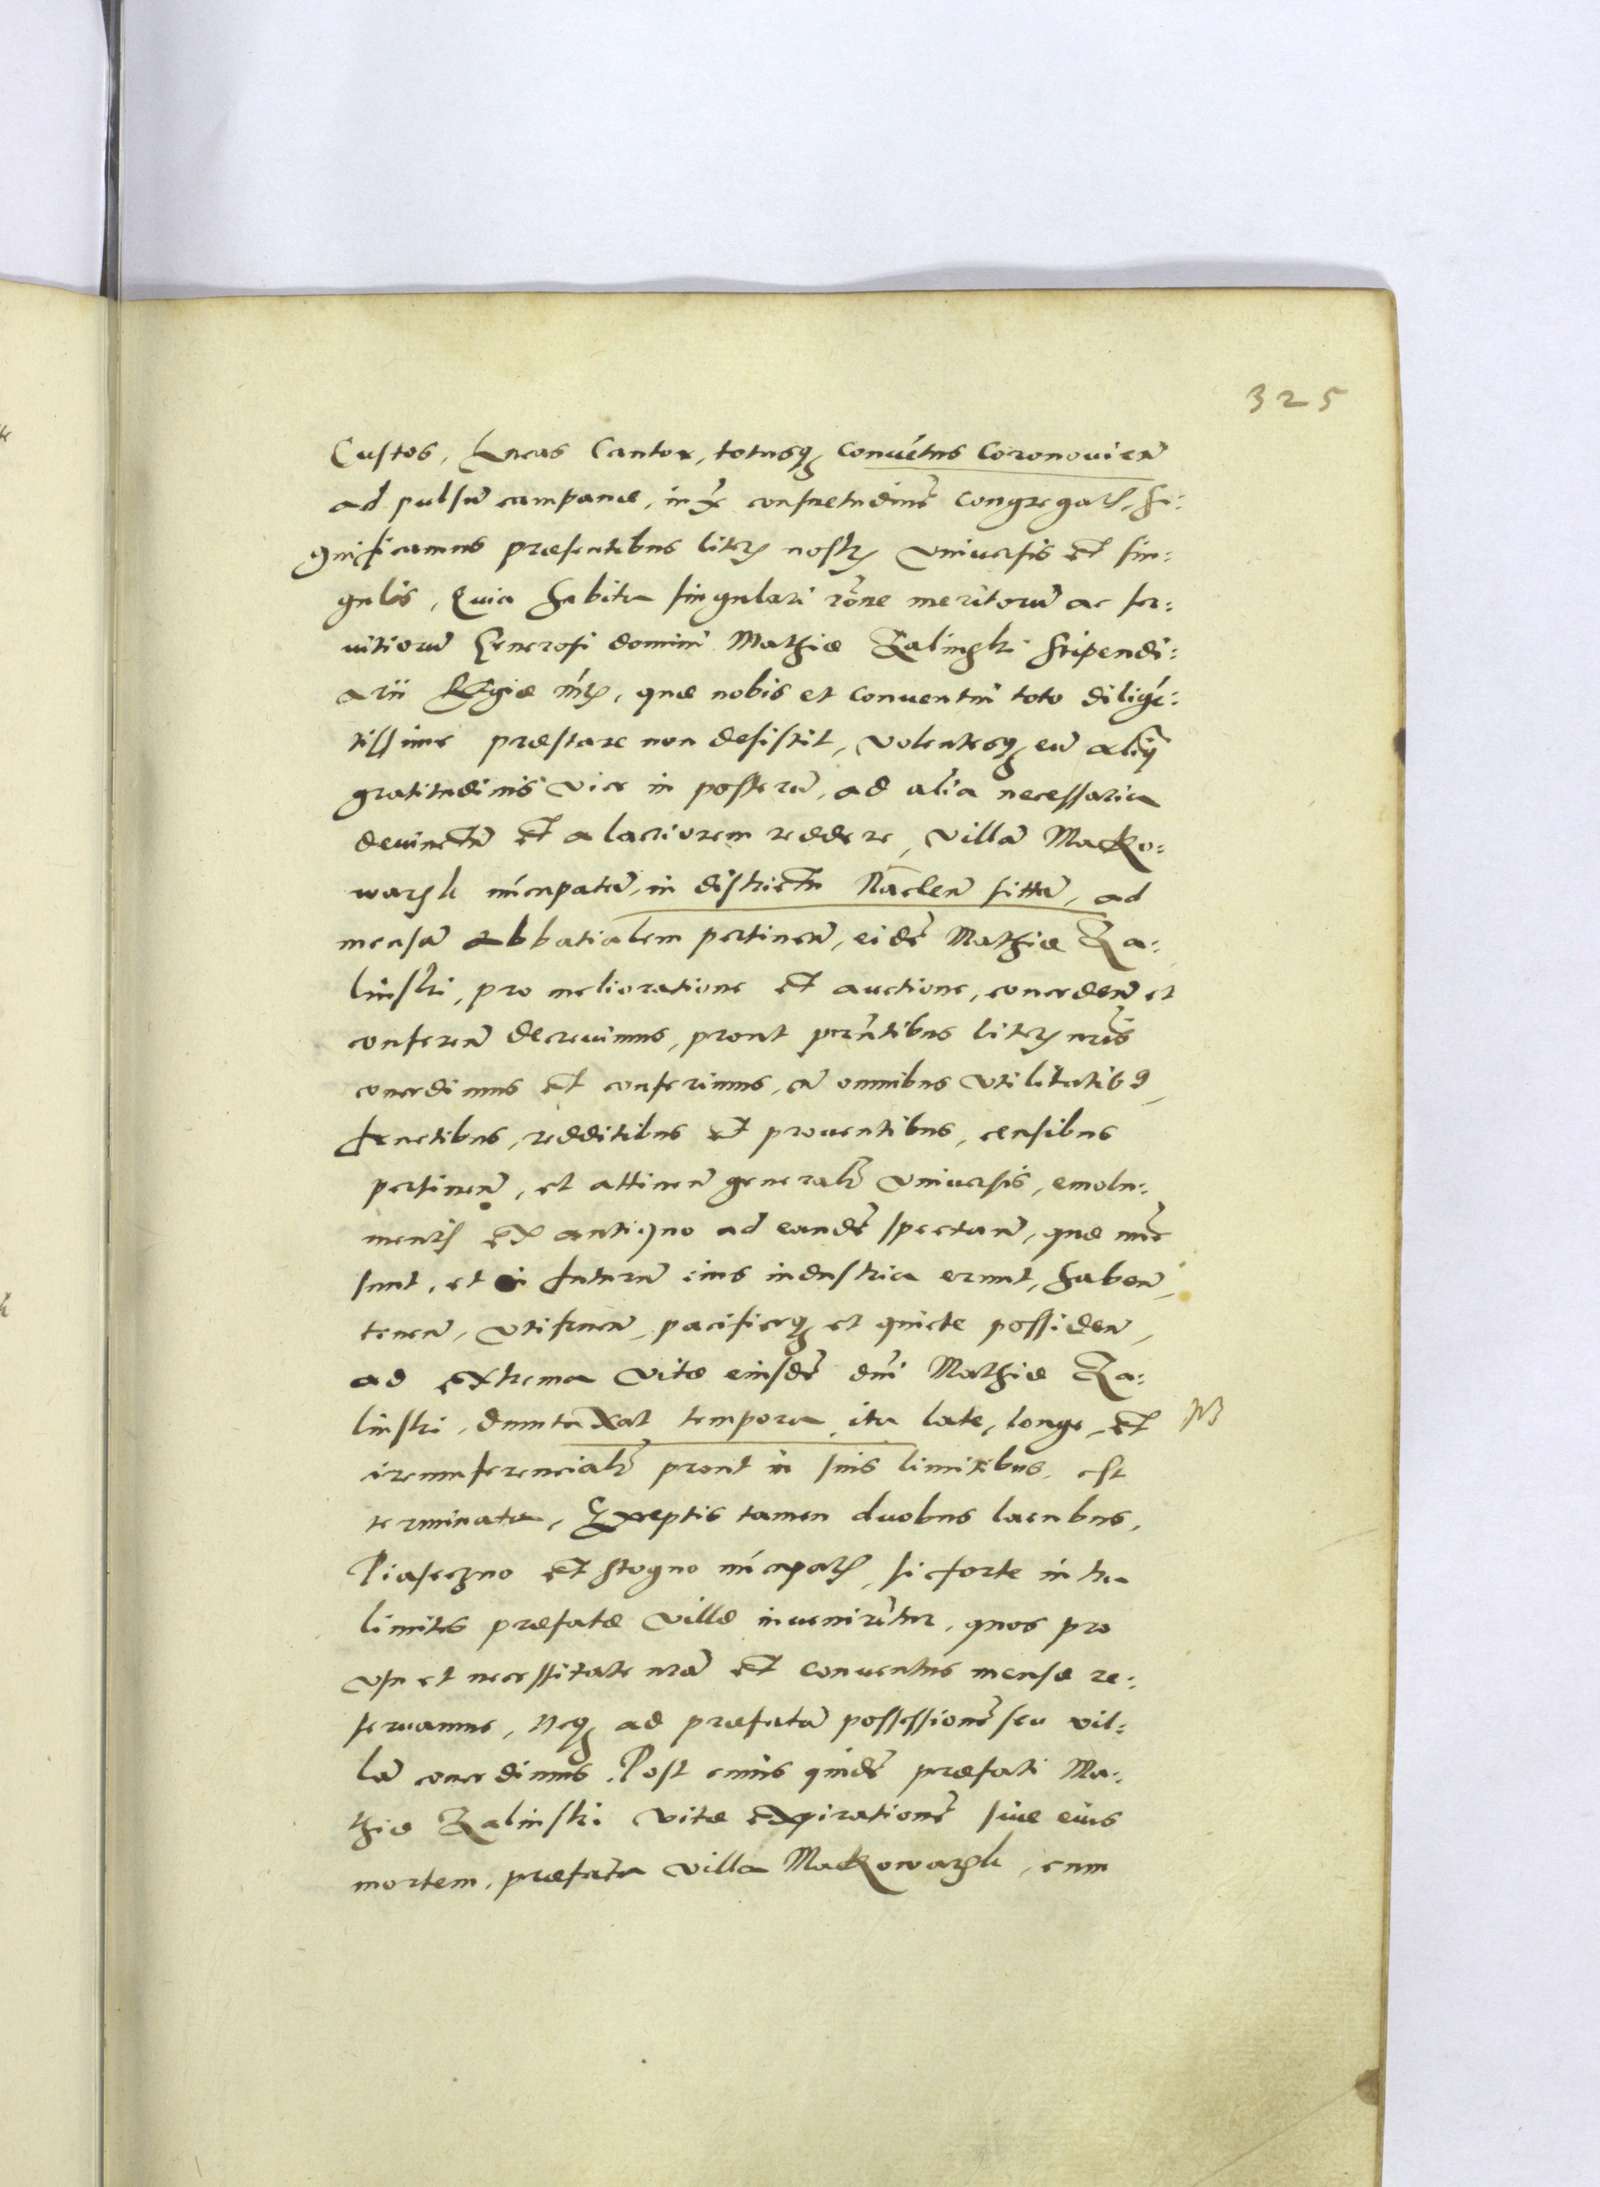 325
Custos, Lucas Cantor, totusq₃ convẽtus Coronovien̄
ad pulsū campanæ, iuxᵃ consuetudinē congregatꝭ, si:
gnificamus præsentibus literꝭ nostrꝭ vniuersis et sin:
gulis, Quia habita singulari rōne meritorū ac ser:
uitiorū Generosi domini Mathiæ Zalinski stipendi:
arii Regiæ mtꝭ, quæ nobis et conventui toto diligē:
tissime præstare non desistit, volentesq₃ eū aliq̄
gratitudinis vice in posterū, ad alia necessaria
devinctū et alacriorem reddere, villā Macko:
warsk nūcupatā, in districtu Naclen̄ sittā, ad
mensā abbatialem pertinen̄, eidē Mathiæ Za:
linski, pro melioratione et auctione, conceden̄ et
conferen̄ decreuimus, prout pn̄tibus literꝭ nr̄is
concedimus et conferimus, cū omnibus vtilitatib9,
fructibus, redditibus et prouentibus, censibus
pertinen̄, et attinen̄ generalr̄ vniuersis, emolu:
mentꝭ ex antiquo ad eandē spectan̄, quæ nūc
sunt, et in futurū eius industria erunt, haben̄,
tenen̄, vtifruen̄, pacificeq₃ et quiete possiden̄,
ad extrema vitæ eiusdē dn̄i Mathiæ Za:
linski, duntaxat tempora, ita late, longe, et
NB
circumferencialr̄ prout in suis limitibus est
terminata, Exceptis tamen duobus lacubus,
Piaseczno et Stogno nūcupatꝭ, si forte intra
limites præfatæ villæ inuenirētur, quos pro
vsu et necessitate nr̄a et conventus mensæ re:
seruamus, Neq₃ ad præfatā possessionē seu vil:
lā concedimus. Post cuius quidē præfati Ma:
thiæ Zalinski vitæ expirationē siue eius
mortem, præfata villa Mackowarsk, cum